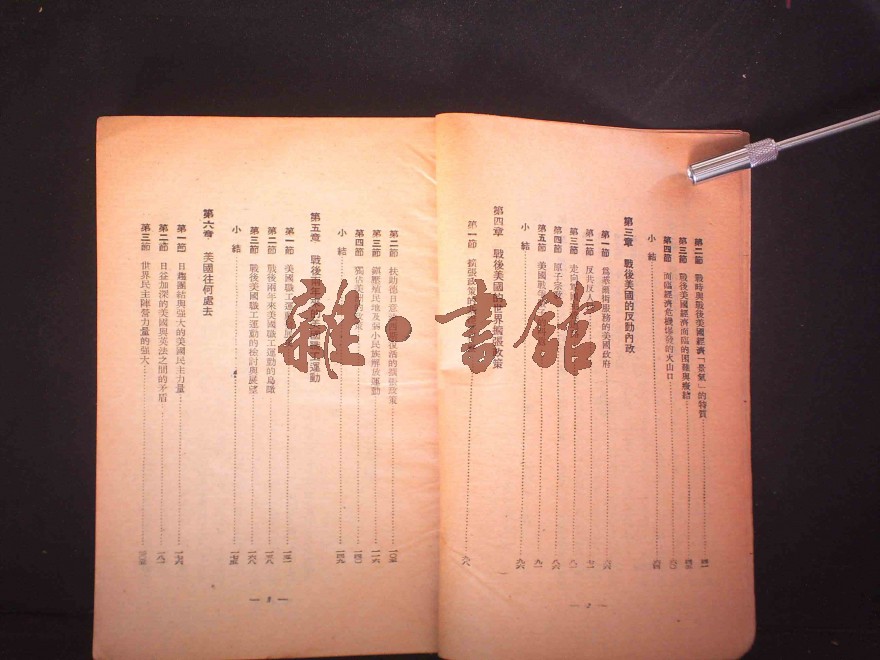 第二節 戰時與戰後美國經濟「景氣」的特質 四一
第三節 戰後美國經濟面臨的困難與癥結 四五
第四節 面臨經濟危機爆發的火山口 六〇
小結 六四
第三章 戰後美國的反動內政
第一節 為華爾街服務的美國政府 六六
第二節 反共反人 七一
第三節 走向 八一
第四節 原子 八六
第五節 美國戰 九一
小結 九六
第四章 戰後美國的世界擴張政策
第一節 擴張政策的 九八
第二節 扶助德日意 復活的擴張政策 一〇五
第三節 鎮壓殖民地及弱小民族解放運動 一一六
第四節 獨佔
小結 一四九
第五章 戰後兩年 運動
第一節 美國職工運動 一五一
第二節 戰後兩年來美國職工運動的 一五八
第三節 戰後美國職工運動的檢討與展望 一六八
小結 一七五
第六章 美國往何處去
第一節 日趨團結與強大的美國民主力量 一七六
第二節 日益加深的美國與英法之間的矛盾 一八
第三節 世界民主陣營力量的強大
— 2 —
— 3 —
雜·書館